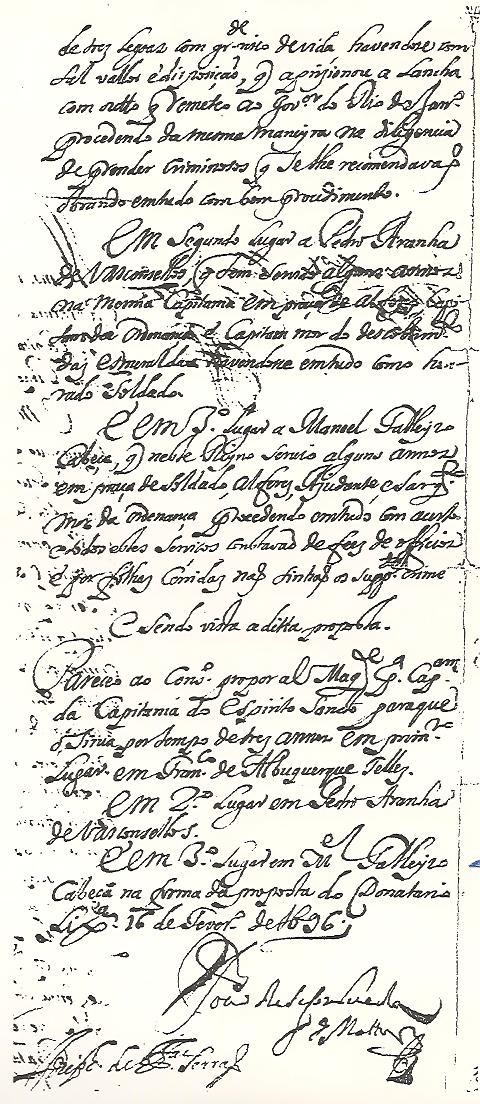 de tres legoas com gr.de risco de vida havendose com
tal vallor e dispozicaõ, q̃ apizionou a Lancha
com ordẽ q̃ remeteo ao Gov.or do Rio de Jan.ro
procedendo da mesma maneyra na diligencia
de prender Criminozos q̃ se lhe recomendavaõ
obrando em tudo com bom procedimento.
Em Segundo lugar a Pedro Aranha
de Vasconsellos q̃ tem servido alguns annos
na mesma Capitania em praça de Alferes
da ordenança e Capitam mor do descobrim.to
das esmeraldas havendose em tudo como hon-
rado Soldado.
E em 3.º lugar a Manoel Falleyro
Cabeça, q̃ neste Reyno servio alguns annos
em praça de Soldado, Alferes, Ajudante e Sarg.to
mór da ordenança procedendo em tudo com acerto
e sobre estes servicos constavaõ de fees de officios
e por folhas Corridas naõ tinhaõ os supp.tes crime
E sendo vista a ditta proposta.
Pareceo ao Cons.º propor a V. Mag.de p.ª Cap.am
da Capitania do Espirito Santo paraque
o Sirva por tempo de tres annos em prim.ro
lugar em Fran.co de Albuquerque Telles.
Em 2.º lugar em Pedro Aranha
de Vasconsellos.
E em 3.º lugar em M.el Falleyro
Cabeça na forma da proposta do Donatario
Lix.ª 16 de Fever.º de 1696.
de Mattos
Serraõ